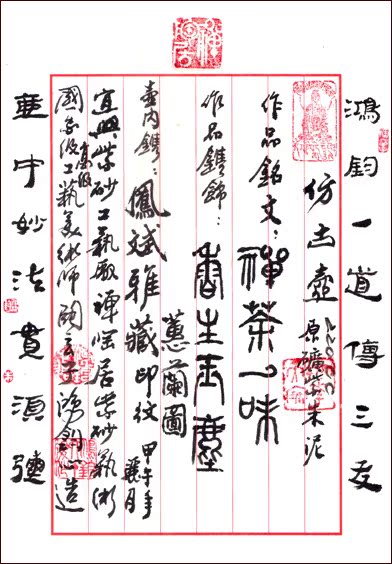 鴻鈞一道傳三友
仿古壺 原礦紫朱泥
作品銘文：禪茶一味
作品鐫飾：香生玉塵
蕙蘭圖
壺內鐫：鳳斌雅藏印紋 甲午年 月
宜興紫砂工藝廠譚 居紫砂藝術
國家級高級工藝美術師 鴻鈞心造
壺中妙法貫須彌